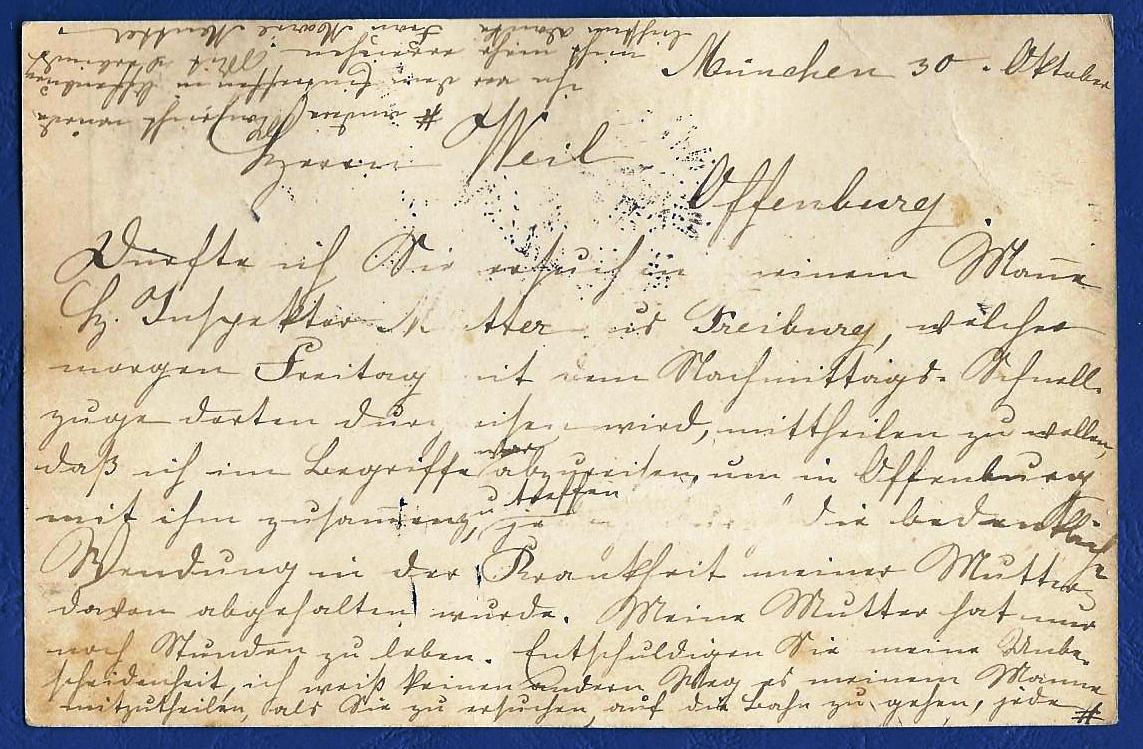 München 30. Oktober
Herrn Weil
Offenburg
Dürfte ich Sie ersuchen meinem Manne
H. Inspektor aus Freiburg, welcher
morgen Freitag mit dem Nachmittags-Schnell-
zuge dorten durchreisen wird, mittheilen zu wollen,
daß ich im Begriffe war abzureisen, um in Offenburg
mit ihm zusammenzutreffen die bedenkliche
Wendung in der Krankheit meiner Mutter
davon abgehalten wurde. Meine Mutter hat nur
noch Stunden zu leben. Entschuldigen Sie meine Unbe-
scheidenheit, ich weiß keinen andern Weg es meinem Manne
mitzutheilen, als Sie zu ersuchen, auf die Bahn zu gehen, jede #
# andere Nachricht würde
ihn vor dem Eintreffen in Offenburg
nicht mehr erreichen. Mit
Frau Marie